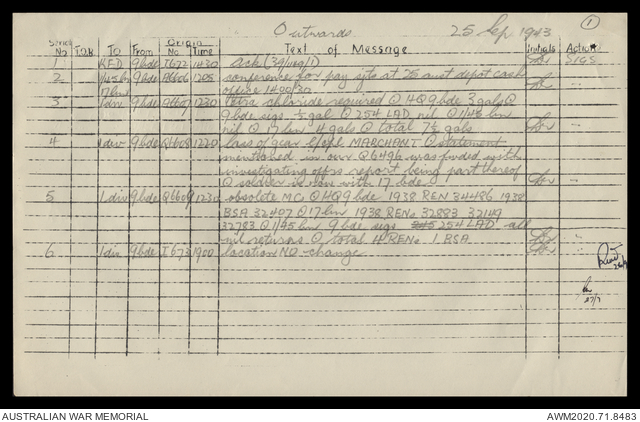 Outwards 25 Sep 1943 1
Serial No T.O.R. To From Origin No Time Text of Message Initials Action
1 KFD 9 bde I672 1430 Ack (39/1149/1) SIGS
2 1/45 bn 9 bde A6606 1205 conference for pay sjts at 25 aust depot cash
17 bn office 1400/30
3 1 div 9 bde A6607 1230 tetra chloride required O HQ 9 bde 3 gals O
9 bde sigs ½ gal O 254 LAD nil O 1/45 bn
nil O 17 bn 4 gals O total 7½ gals
4 1 div 9 bde Q6608 1220 loss of gear MARCHANT O statement
mentioned in our Q6496 was funded with
investigating offrs report being part thereof
O soldier is now with 17 bde O
5 1 div 9 bde Q6609 1230 obsolete MCs O HQ 9 bde 1938 REN 34486 1938
BSA 32407 O 17 bn 1938 RENs 32883 32149
32783 O 1/45 bn 9 bde sigs 254 LAD all
nil returns O total 4 RENs 1 BSA
6 1 div 9 bde I673 1900 location NO change
27/9
AUSTRALIAN WAR MEMORIAL AWM2020.71.8483